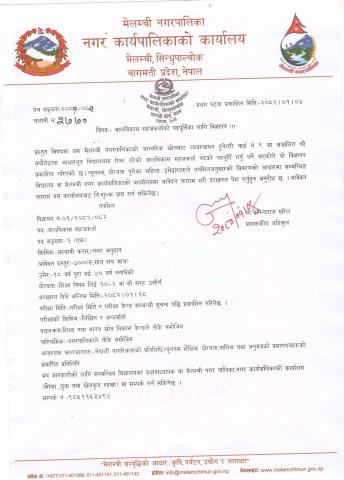 मेलम्ची नगरपालिका
नगर कार्यपालिकाको कार्यालय
मेलम्ची, सिन्धुपाल्चोक
बागमती प्रदेश, नेपाल
पत्र सङ्ख्या:२०८१/०८२
चलानी नं: २७७०
प्रथम पटक प्रकाशित मिति:-२०८२।०१।०४
विषय:- बालविकास सहजकर्ताको पदपूर्तिका लागि विज्ञापन !!!
प्रस्तुत विषयमा यस मेलम्ची नगरपालिकाको आन्तरिक स्रोतबाट व्यवस्थापन हुनेगरी वार्ड नं ९ मा सञ्चालित श्री
आधारभूत विद्यालयमा रिक्त रहेको बालविकास सहजकर्ता पदको पदपूर्ति गर्नु पर्ने भएकोले यो विज्ञापन
प्रकाशित गरिएको छ। न्यूनतम् योग्यता पुगेका महिला उम्मेद्वारहरुले तपसिल अनुसारको विवरणको आधारमा सम्बन्धित
विद्यालय वा मेलम्ची नगर कार्यपालिकाको कार्यालयमा आवेदन फाराम भरी दरखास्त पेश गर्नुहुन अनुरोध छ । आवेदन
फाराम यस कार्यालयबाट नि:शुल्क प्राप्त गर्न सकिनेछ ।
तपसिल
विज्ञापन नं:-०१/२०८१/०८२
पद:-बालविकास सहजकर्ता
पद सङ्ख्या:-१ (एक)
किसिम:-अस्थायी करार/नगर अनुदान
आवेदन दस्तुर:-७००(रु,सात सय मात्र)
उमेर:-१८ वर्ष पुरा भई ४० वर्ष ननाघेको
योग्यता:-शिक्षा विषय लिई १०+२ वा सो सरह उत्तीर्ण
दरखास्त दिने अन्तिम मिति:-२०८२।०१।१८
परीक्षा मिति:-परीक्षा मिति र परीक्षा केन्द्र सम्बन्धी सूचना पछि प्रकाशित गरिनेछ ।
परीक्षाको किसिम:-लिखित र अन्तर्वार्ता
पाठ्यक्रम:शिक्षा तथा मानव स्रोत विकास केन्द्रले तोके बमोजिम
पारिश्रमिक:-नगरपालिकाले तोके बमोजिम
आवश्यक कागजातहरु:-नेपाली नागरिकताको प्रतिलिपि,न्यूनतम शैक्षिक योग्यता,तालिम तथा अनुभवको प्रमाणपत्रहरुको
प्रमाणित प्रतिलिपि
थप जानकारीको लागि सम्बन्धित विद्यालयका प्रधानाध्यापक वा मेलम्ची नगर पालिका,नगर कार्यपालिकाको कार्यालय
(शिक्षा ,युवा तथा खेलकुद शाखा) मा सम्पर्क गर्न सकिनेछ ।
सम्पर्क नं
२०८२।०१।०४
खरेल
प्रशासकीय अधिकृत
"मेलम्ची समृद्धिको आधार: कृषि, पर्यटन, उद्योग र जलाधार"
फोन नं. :+977-011-401088, 011-401141, 011-401142 इमेल: info@melamchimun.gov.np वेबसाइट: www.melamchimun.gov.np